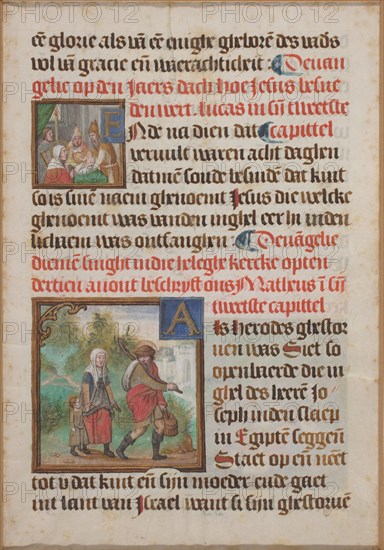 cē glorie als vā eē enighe gheborē des vads
vol vā gracie eñ waerachticheit : Deuan
gelie op den Jaers dach hoe Jesus besne
den wert. lucas in sij tweetste
Ende na dien dat Capittel
veruult waren acht daghen
datmē soude besnidē dat kint
so is sinē naem ghenoemt Jesus die welcke
ghenoemt was vanden inghel eer hi inden
lichaem was ontfanghen Deuāgelie
diemē singht in die heleghe kercke op ten
dertien auont bescryft ons Matheus ī sij
tweetste capittel
Als herodes ghestor
uen was Siet so
openbaerde die in
ghel des heerē Jo
seph inden slaep
in Egiptē seggen
Staet op eñ neēt
tot v dat kint eñ sijn moeder ende gaet
int lant van Israel want si sijn ghestoruē